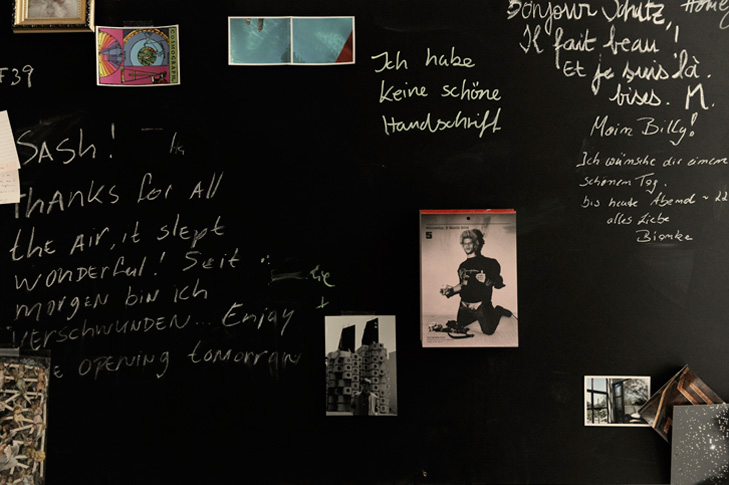 COSMOGRAPH
F39
Ich habe
keine schöne
Handschrift
Bonjour Schutz,
Il fait beau!
Et je suis là.
bises. M.
Moin Billy!
Ich wünsche dir einen
schönen Tag.
bis heute Abend ~ 22
alles Liebe
Bianka
SASH!
THANKS for All
the AIR, it slept
wonderful! Seit
morgen bin ich
VERSCHWUNDEN... Enjoy
OPENING tomorrow
5